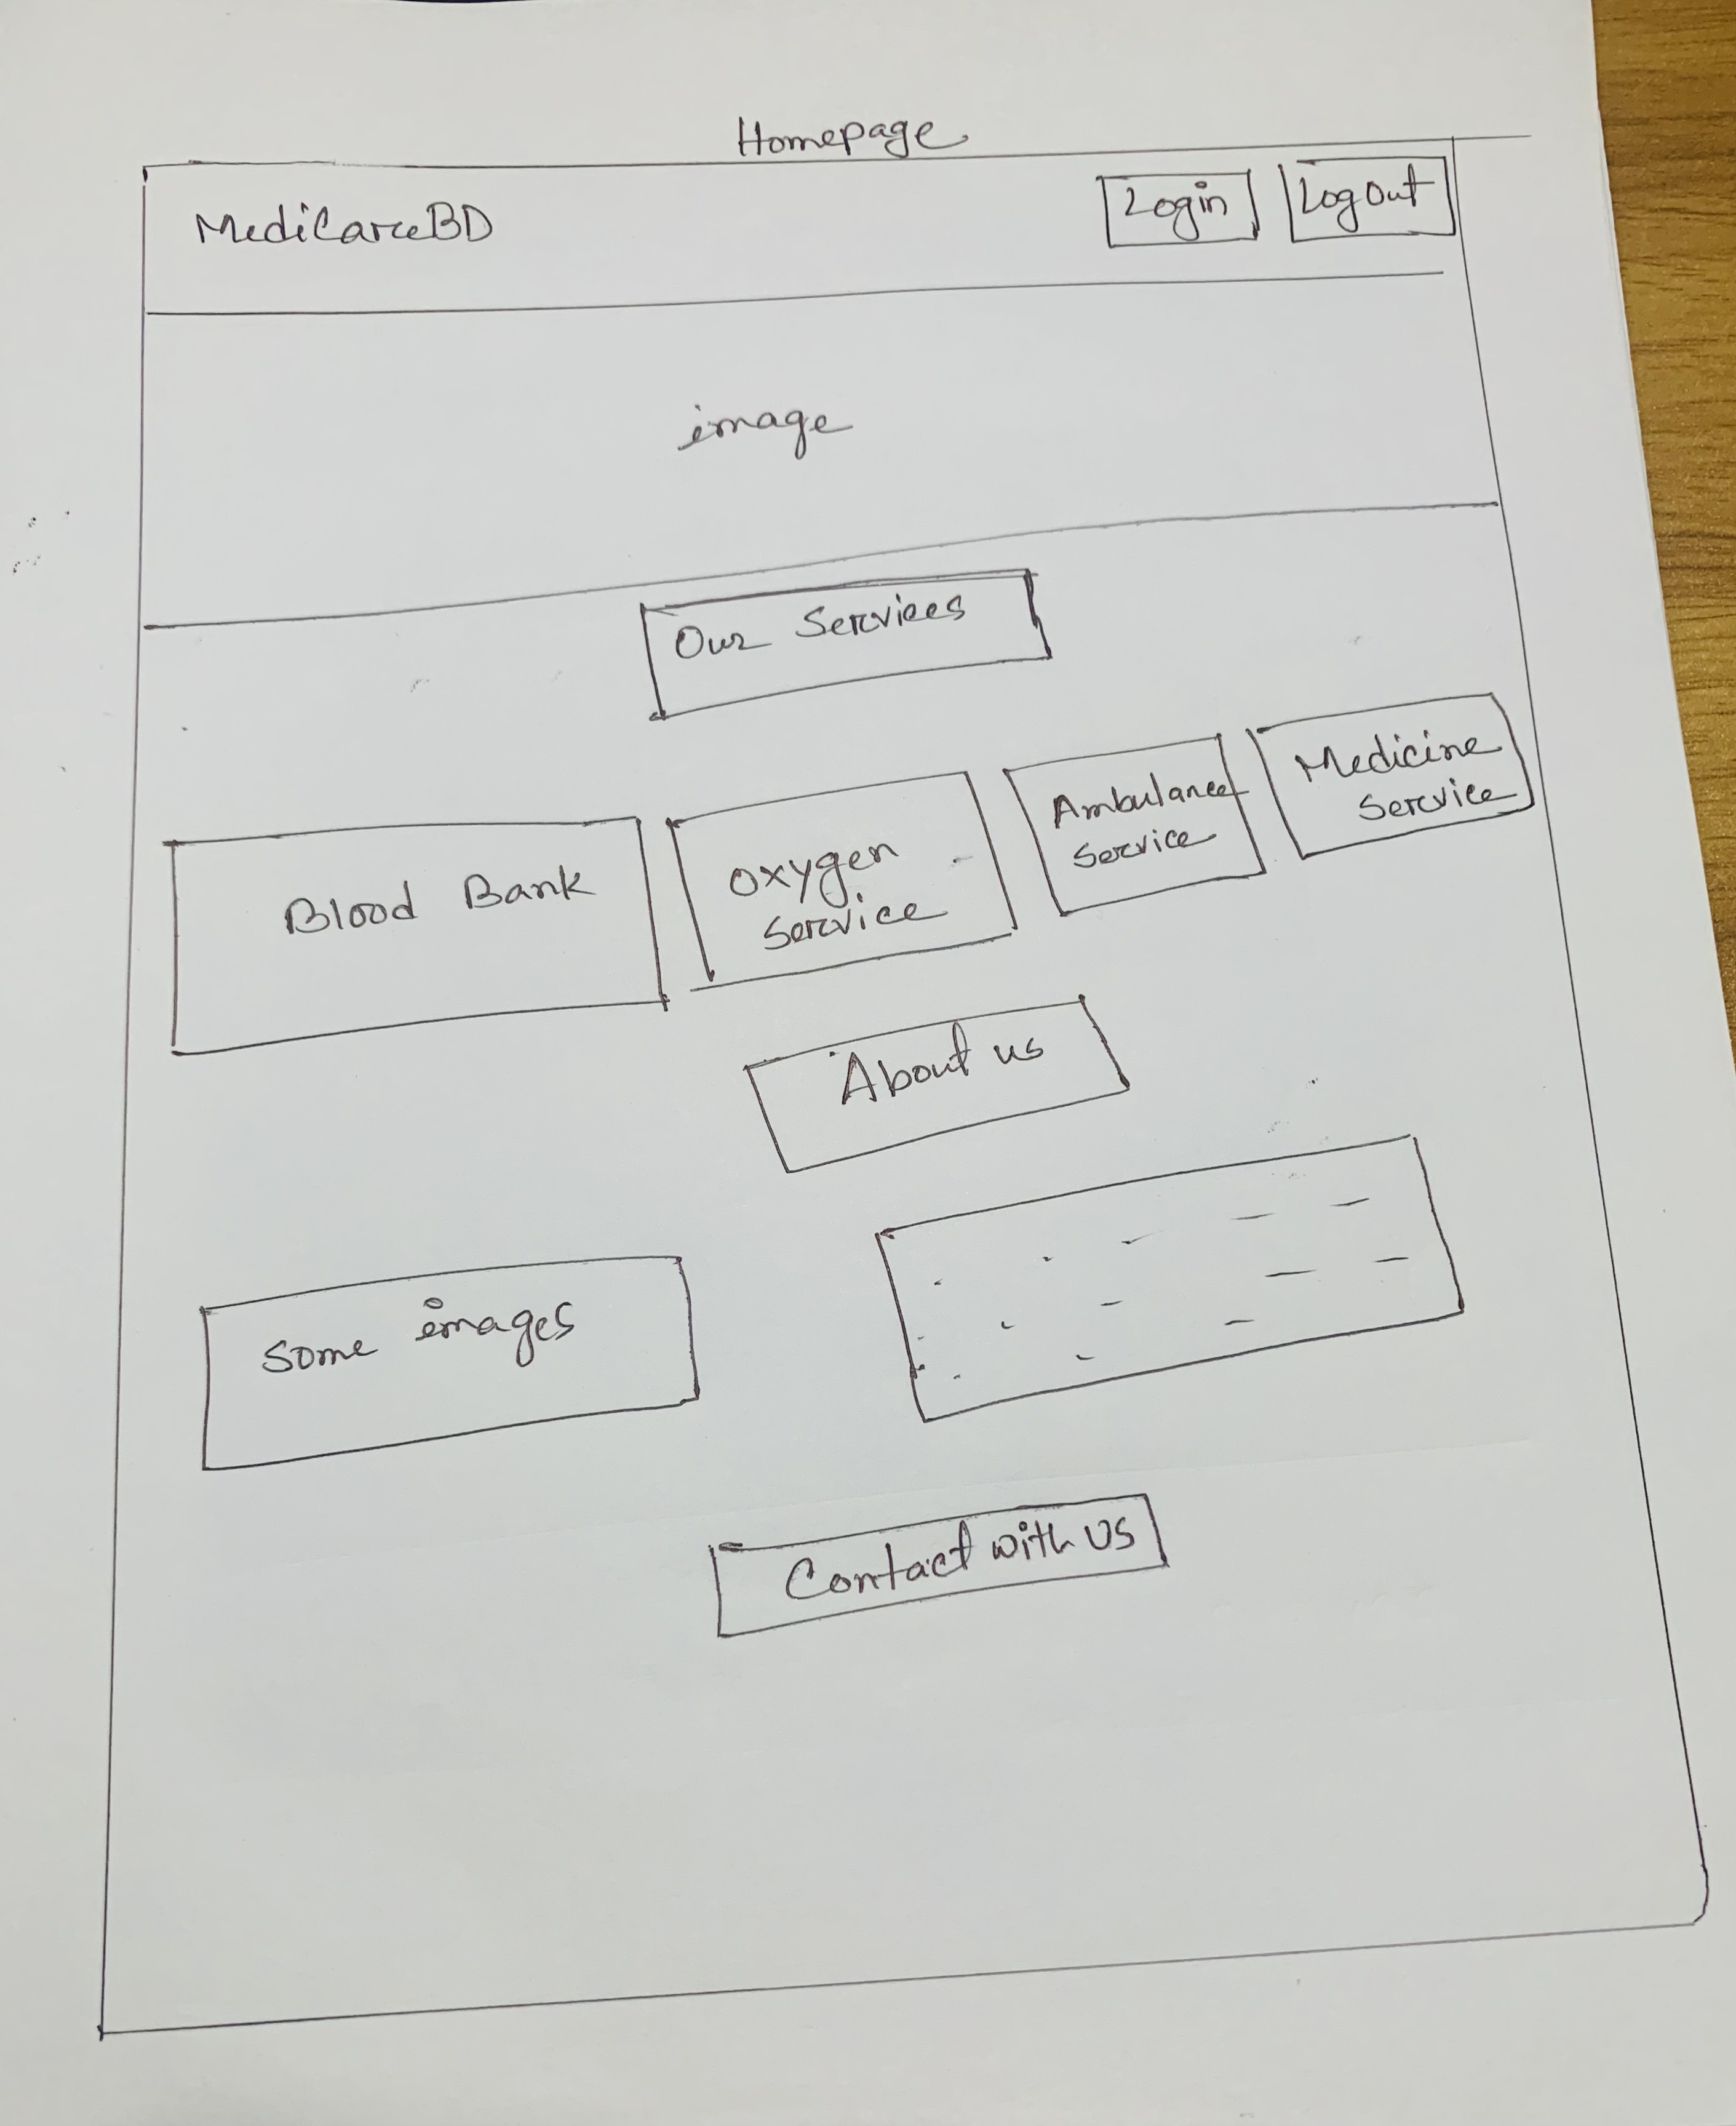 Homepage
MedicareBD
Login
Logout
image
Our Services
Blood Bank
Oxygen
Service
Ambulance
Service
Medicine
Service
About us
Some images
Contact with us